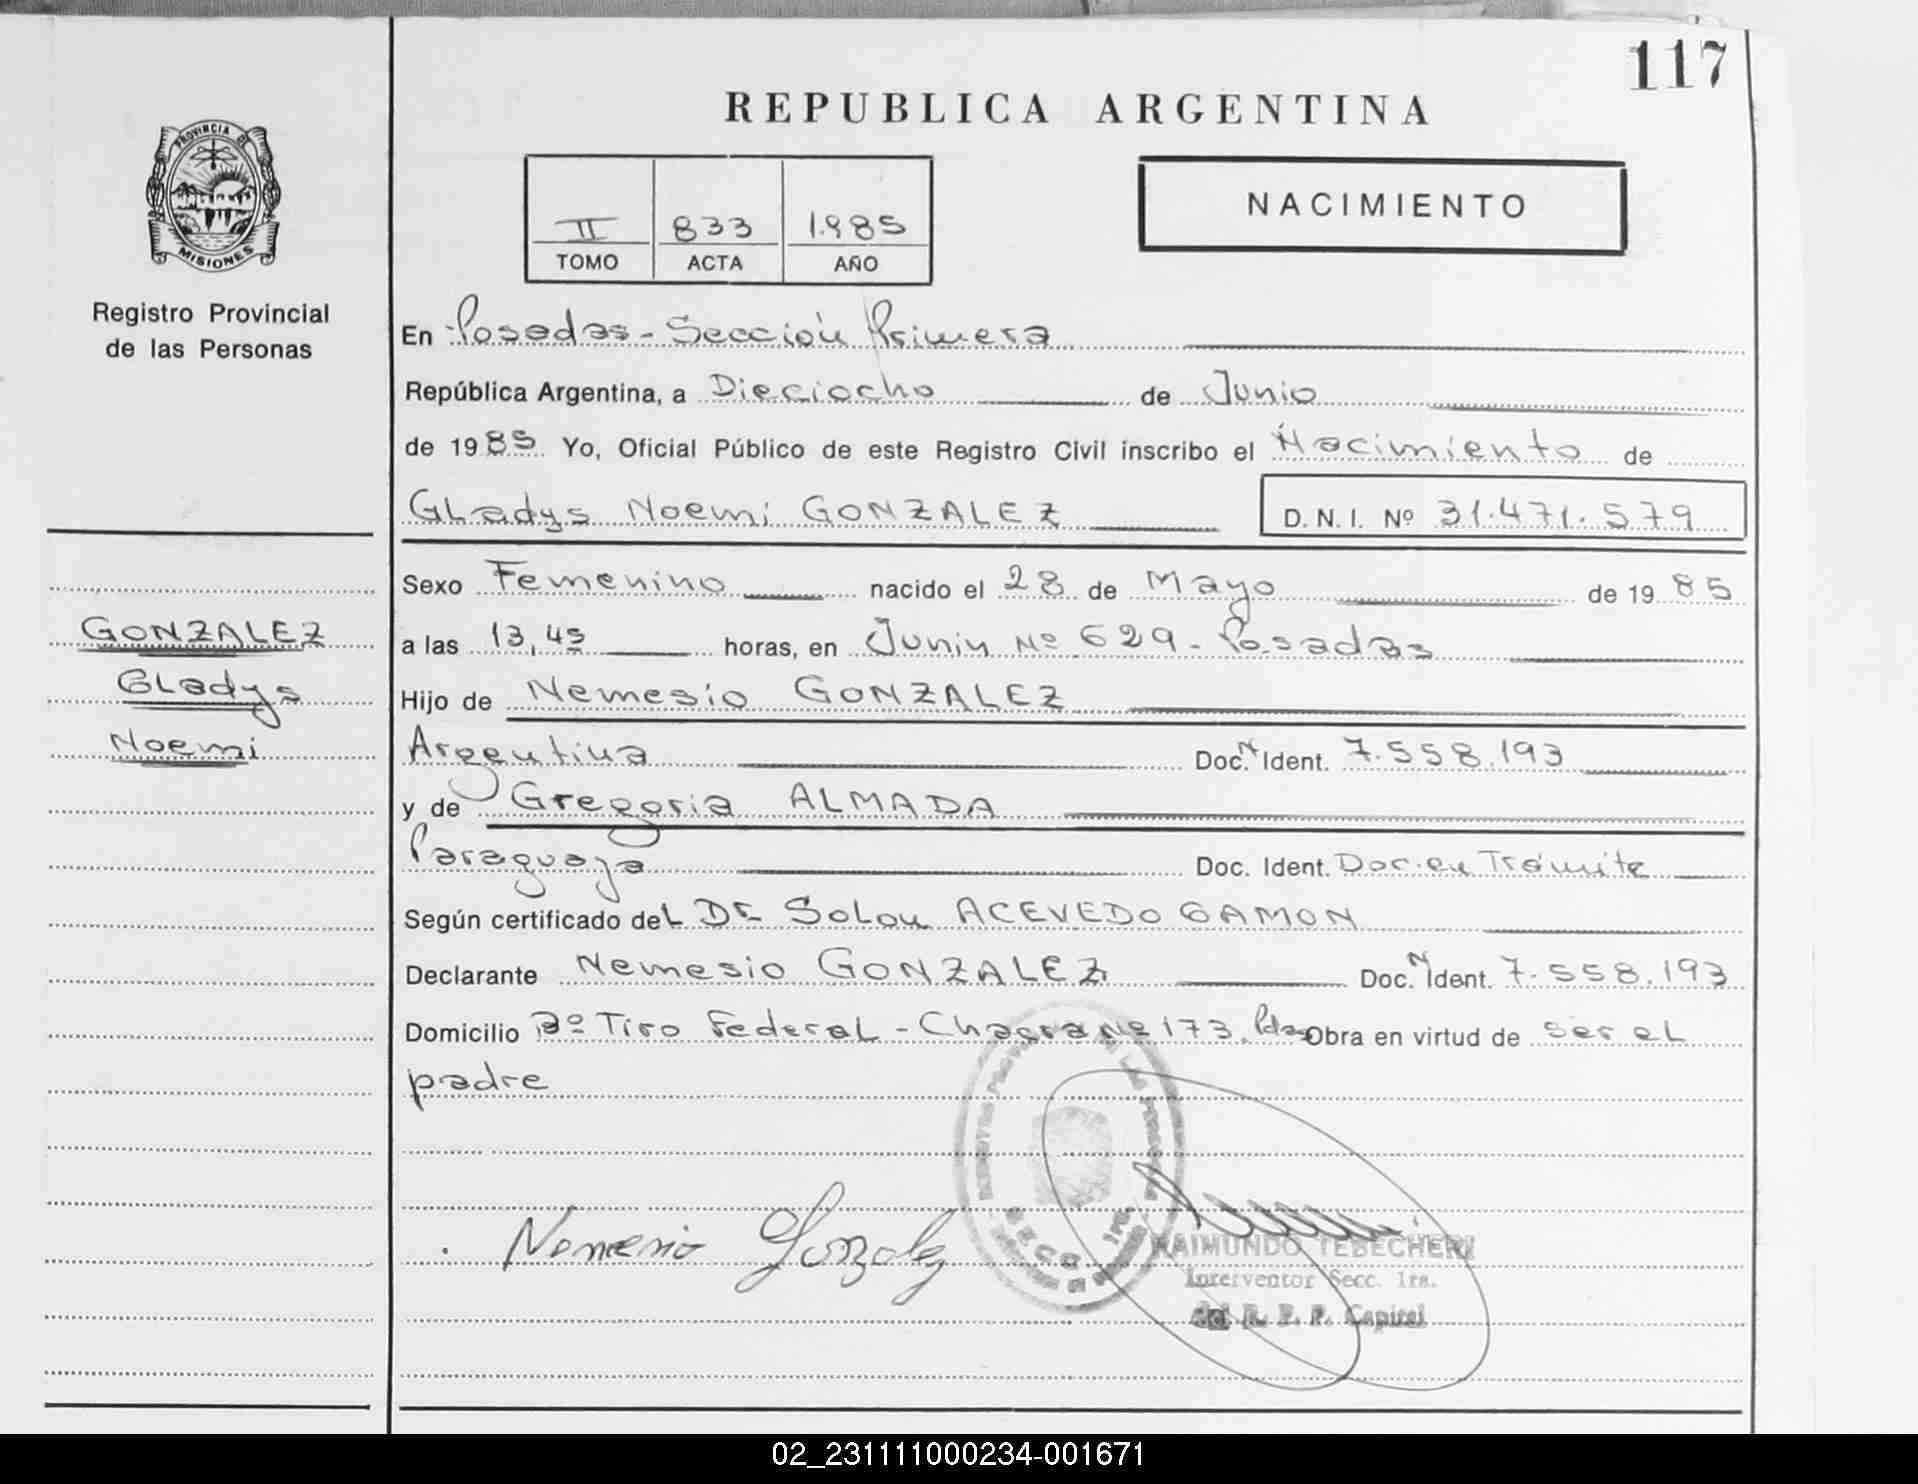 117
REPUBLICA ARGENTINA
PROVINCIA DE
MISIONES
Registro Provincial
de las Personas
II 833 1.985
TOMO ACTA AÑO
NACIMIENTO
En Posadas - Sección Primera
República Argentina, a Dieciocho de Junio
de 1985 Yo, Oficial Público de este Registro Civil inscribo el Nacimiento de
Gladys Noemi GONZALEZ D.N.I. Nº 31.471.579
Sexo Femenino nacido el 28 de Mayo de 1985
a las 13,45 horas, en Junin Nº 629 - Posadas
Hijo de Nemesio GONZALEZ
Argentina Doc. N Ident. 7.558.193
y de Gregoria ALMADA
Paraguaya Doc. Ident. Doc. en Trámite
Según certificado del Dr Solon ACEVEDO GAMON
Declarante Nemesio GONZALEZ Doc. N Ident. 7.558.193
Domicilio Bº Tiro Federal - Chacra Nº 173. Pdas Obra en virtud de ser el
padre
GONZALEZ
Gladys
Noemi
Nemesio Gonzalez
RAIMUNDO TEBECHERI
Interventor Secc. 1ra.
del R. P. P. Capital
02_231111000234-001671